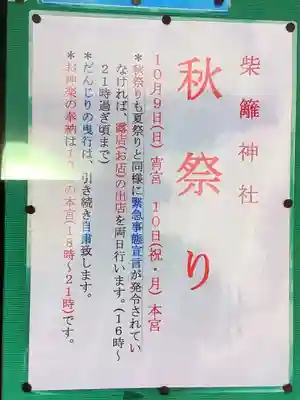 柴籬神社
秋祭り
10月9日(日) 宵宮 10日(祝・月) 本宮
*秋祭りも夏祭りと同様に緊急事態宣言が発令されてい
なければ、露店(お店)の出店を両日行います。(16時～
21時過ぎ頃まで)
*だんじりの曳行は、引き続き自粛致します。
*お神楽の奉納は10日の本宮(18時～21時)です。